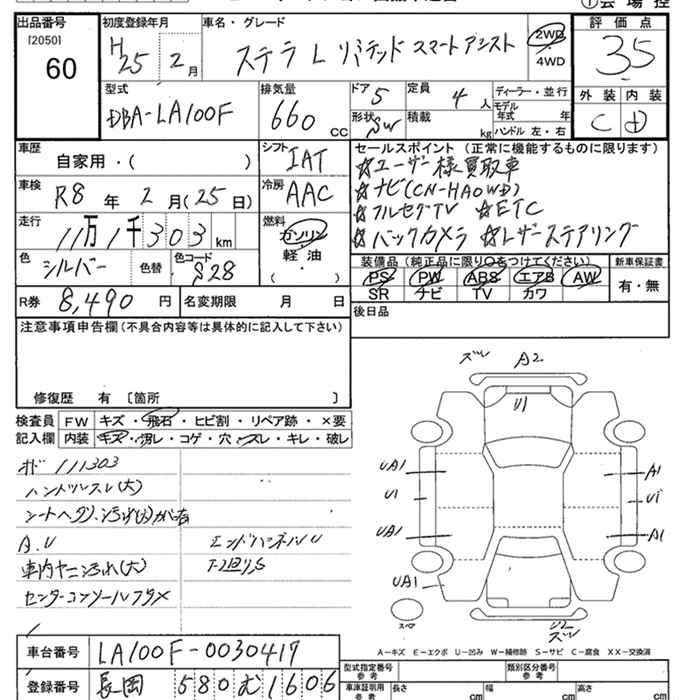 出品番号
[2050]
60
初度登録年月
H25 2月
車名・グレード
ステラ L リミテッド スマートアシスト
2WD
4WD
評価点
3.5
型式
DBA-LA100F
排気量
660 CC
ドア 5
定員 4 人
形状 SW
積載 kg
ディーラー・並行
モデル
年式 年
ハンドル 左・右
外装 内装
C D
車歴
自家用・( )
シフト IAT
車検 R8 年 2 月(25 日)
冷房 AAC
走行 11万1千303 km
燃料
ガソリン
軽油
( ・ )
色 シルバー
色替
色コード S28
R券 8,490 円
名変期限 月 日
セールスポイント(正常に機能するものに限ります)
☆ユーザー様買取車
☆ナビ(CN-HA0WD)
☆フルセグTV ☆ETC
☆バックカメラ ☆レザーステアリング
装備品(純正品に限り○をつけてください)
PS PW ABS エアB AW
SR ナビ TV カワ
新車保証書
有・無
後日品
注意事項申告欄(不具合内容等は具体的に記入して下さい)
修復歴 有 〔箇所 〕
検査員
記入欄
FW キズ・飛石・ヒビ割・リペア跡・×要
内装 キズ・汚レ・コゲ・穴・スレ・キレ・破レ
オド 111303
ハンドルスレ(大)
A.U
エンドパネルU
車内ヤニ汚れ(大)
下回りS
センターコンソールフタメ
車台番号 LA100F-0030417
登録番号 長岡 580 む 1606
ズレ A2
U1
UA1
U1
UA1
UA1
A1
U1
A1
スペア
U2
ズレ
A-キズ E-エクボ U-凹み W-補修跡 S-サビ C-腐食 XX-交換済
型式指定番号
参考
類別区分番号
参考
車庫証明用
参考
長さ cm 幅 cm 高さ cm